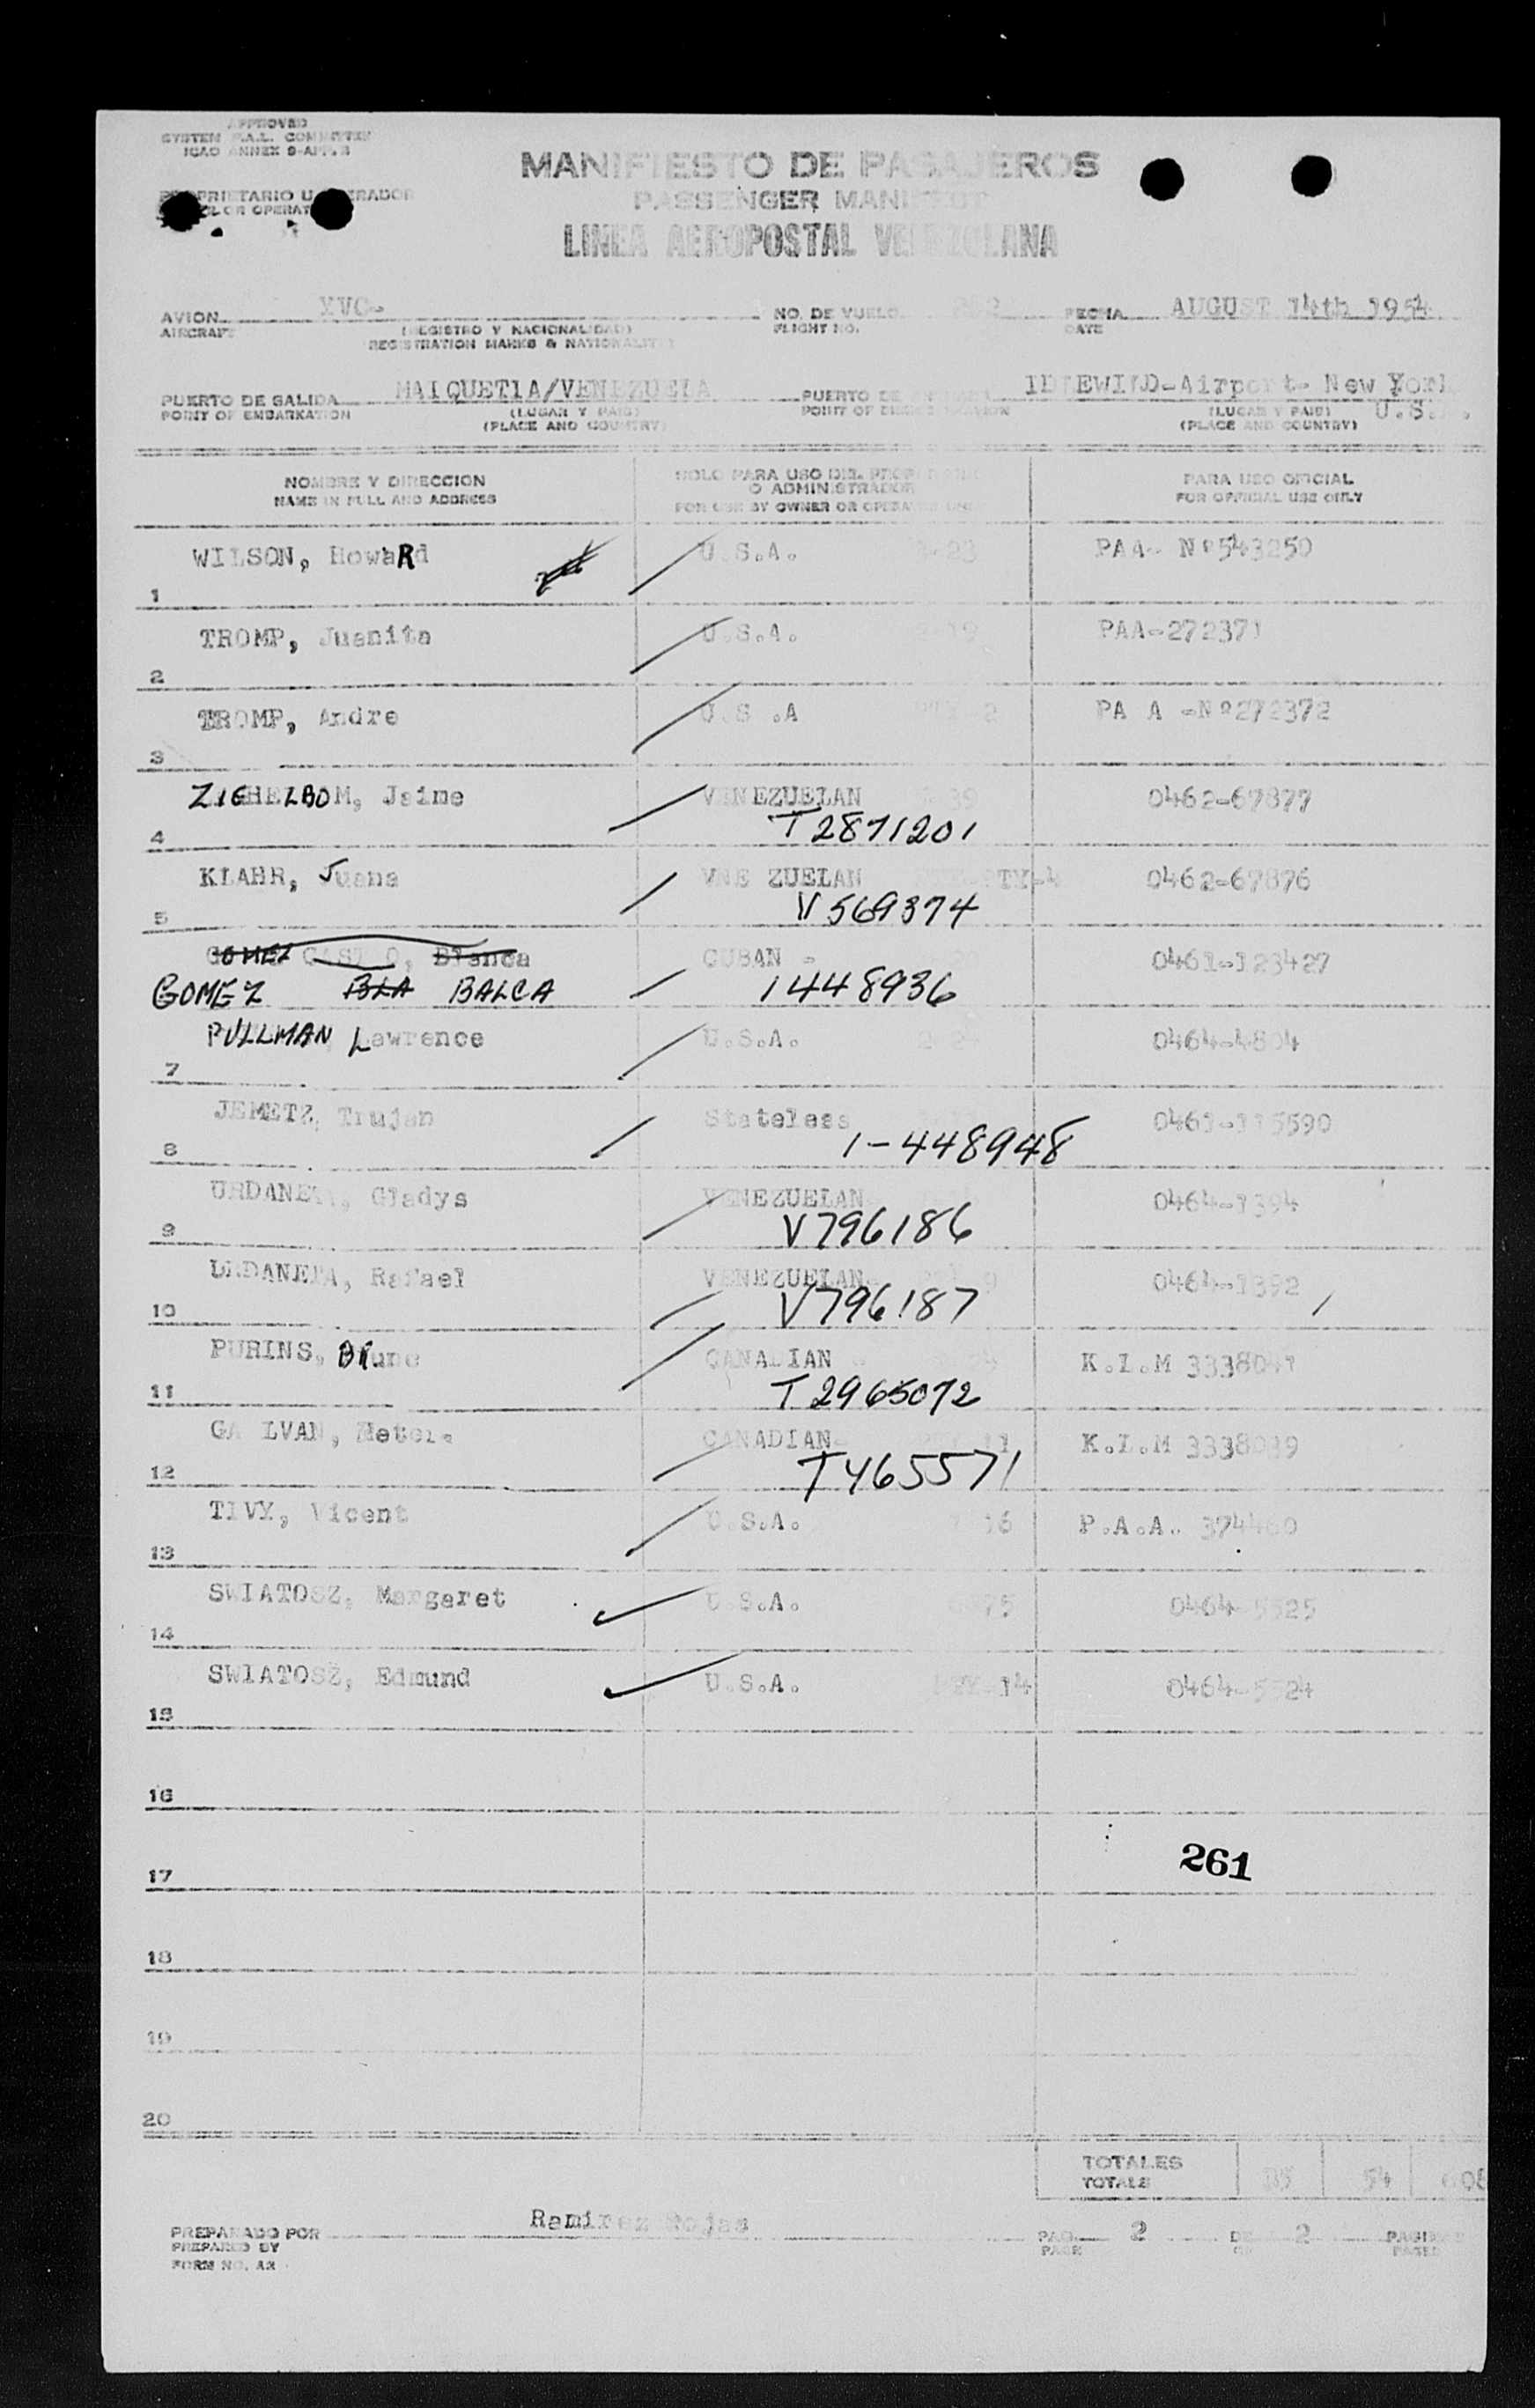 APPROVED
SYSTEM F.A.L. COMMITTEE
ICAO ANNEX 9-APP. 3
MANIFIESTO DE PASAJEROS
PASSENGER MANIFEST
LINEA AEROPOSTAL VENEZOLANA
PROPRIETARIO U OPERADOR
OR OPERATOR
AVION XVC- NO. DE VUELO FECHA AUGUST 14th 1954
AIRCRAFT (REGISTRO Y NACIONALIDAD) FLIGHT NO. DATE
REGISTRATION MARKS & NATIONALITY
PUERTO DE SALIDA MAIQUETIA/VENEZUELA PUERTO DE IDLEWILD-Airport- New York
POINT OF EMBARKATION (LUGAR Y PAIS) POINT OF (LUGAR Y PAIS) U.S.
(PLACE AND COUNTRY) (PLACE AND COUNTRY)
NOMBRE Y DIRECCION SOLO PARA USO DEL O ADMINISTRADOR PARA USO OFICIAL
NAME IN FULL AND ADDRESS FOR USE BY OWNER OR OPERATOR ONLY FOR OFFICIAL USE ONLY
WILSON, HowaRd U.S.A. -23 PAA- Nº543250
1
TROMP, Juanita U.S.A. 19 PAA-272371
2
TROMP, Andre U.S .A 2 PA A -Nº272372
3
ZIGHELBOM, Jaime VENEZUELAN 39 0462-67877
4 T2871201
KLAHR, Juana VNE ZUELAN TY-4 0462-67876
5 V569374
GOMEZ CASTRO, Blanca CUBAN - 0461-123427
GOMEZ BLA BALCA 1448936
PULLMAN Lawrence U.S.A. 0464-4804
7
JEMETZ, Trujan Stateless 0461-115590
8 1-448948
URDANETA, Gladys VENEZUELAN 0464-1394
9 V796186
URDANETA, Rafael VENEZUELAN- 9 0464-1392
10 V796187
PURINS, BRUno CANADIAN K.L.M 3338041
11 T2965072
GA LVAN, CANADIAN- 11 K.L.M 3338039
12 T465571
TIVY, Vicent U.S.A. 16 P.A.A. 374460
13
SWIATOSZ, Margaret U.S.A. 75 0464-5525
14
SWIATOSZ, Edmund U.S.A. 14 0464-5524
15
16
17 261
18
19
20
TOTALES
TOTALS 54
PREPARADO POR Ramirez Rojas PAG. 2 DE 2 PAGINAS
PREPARED BY PAGE OF PAGES
FORM NO. A2